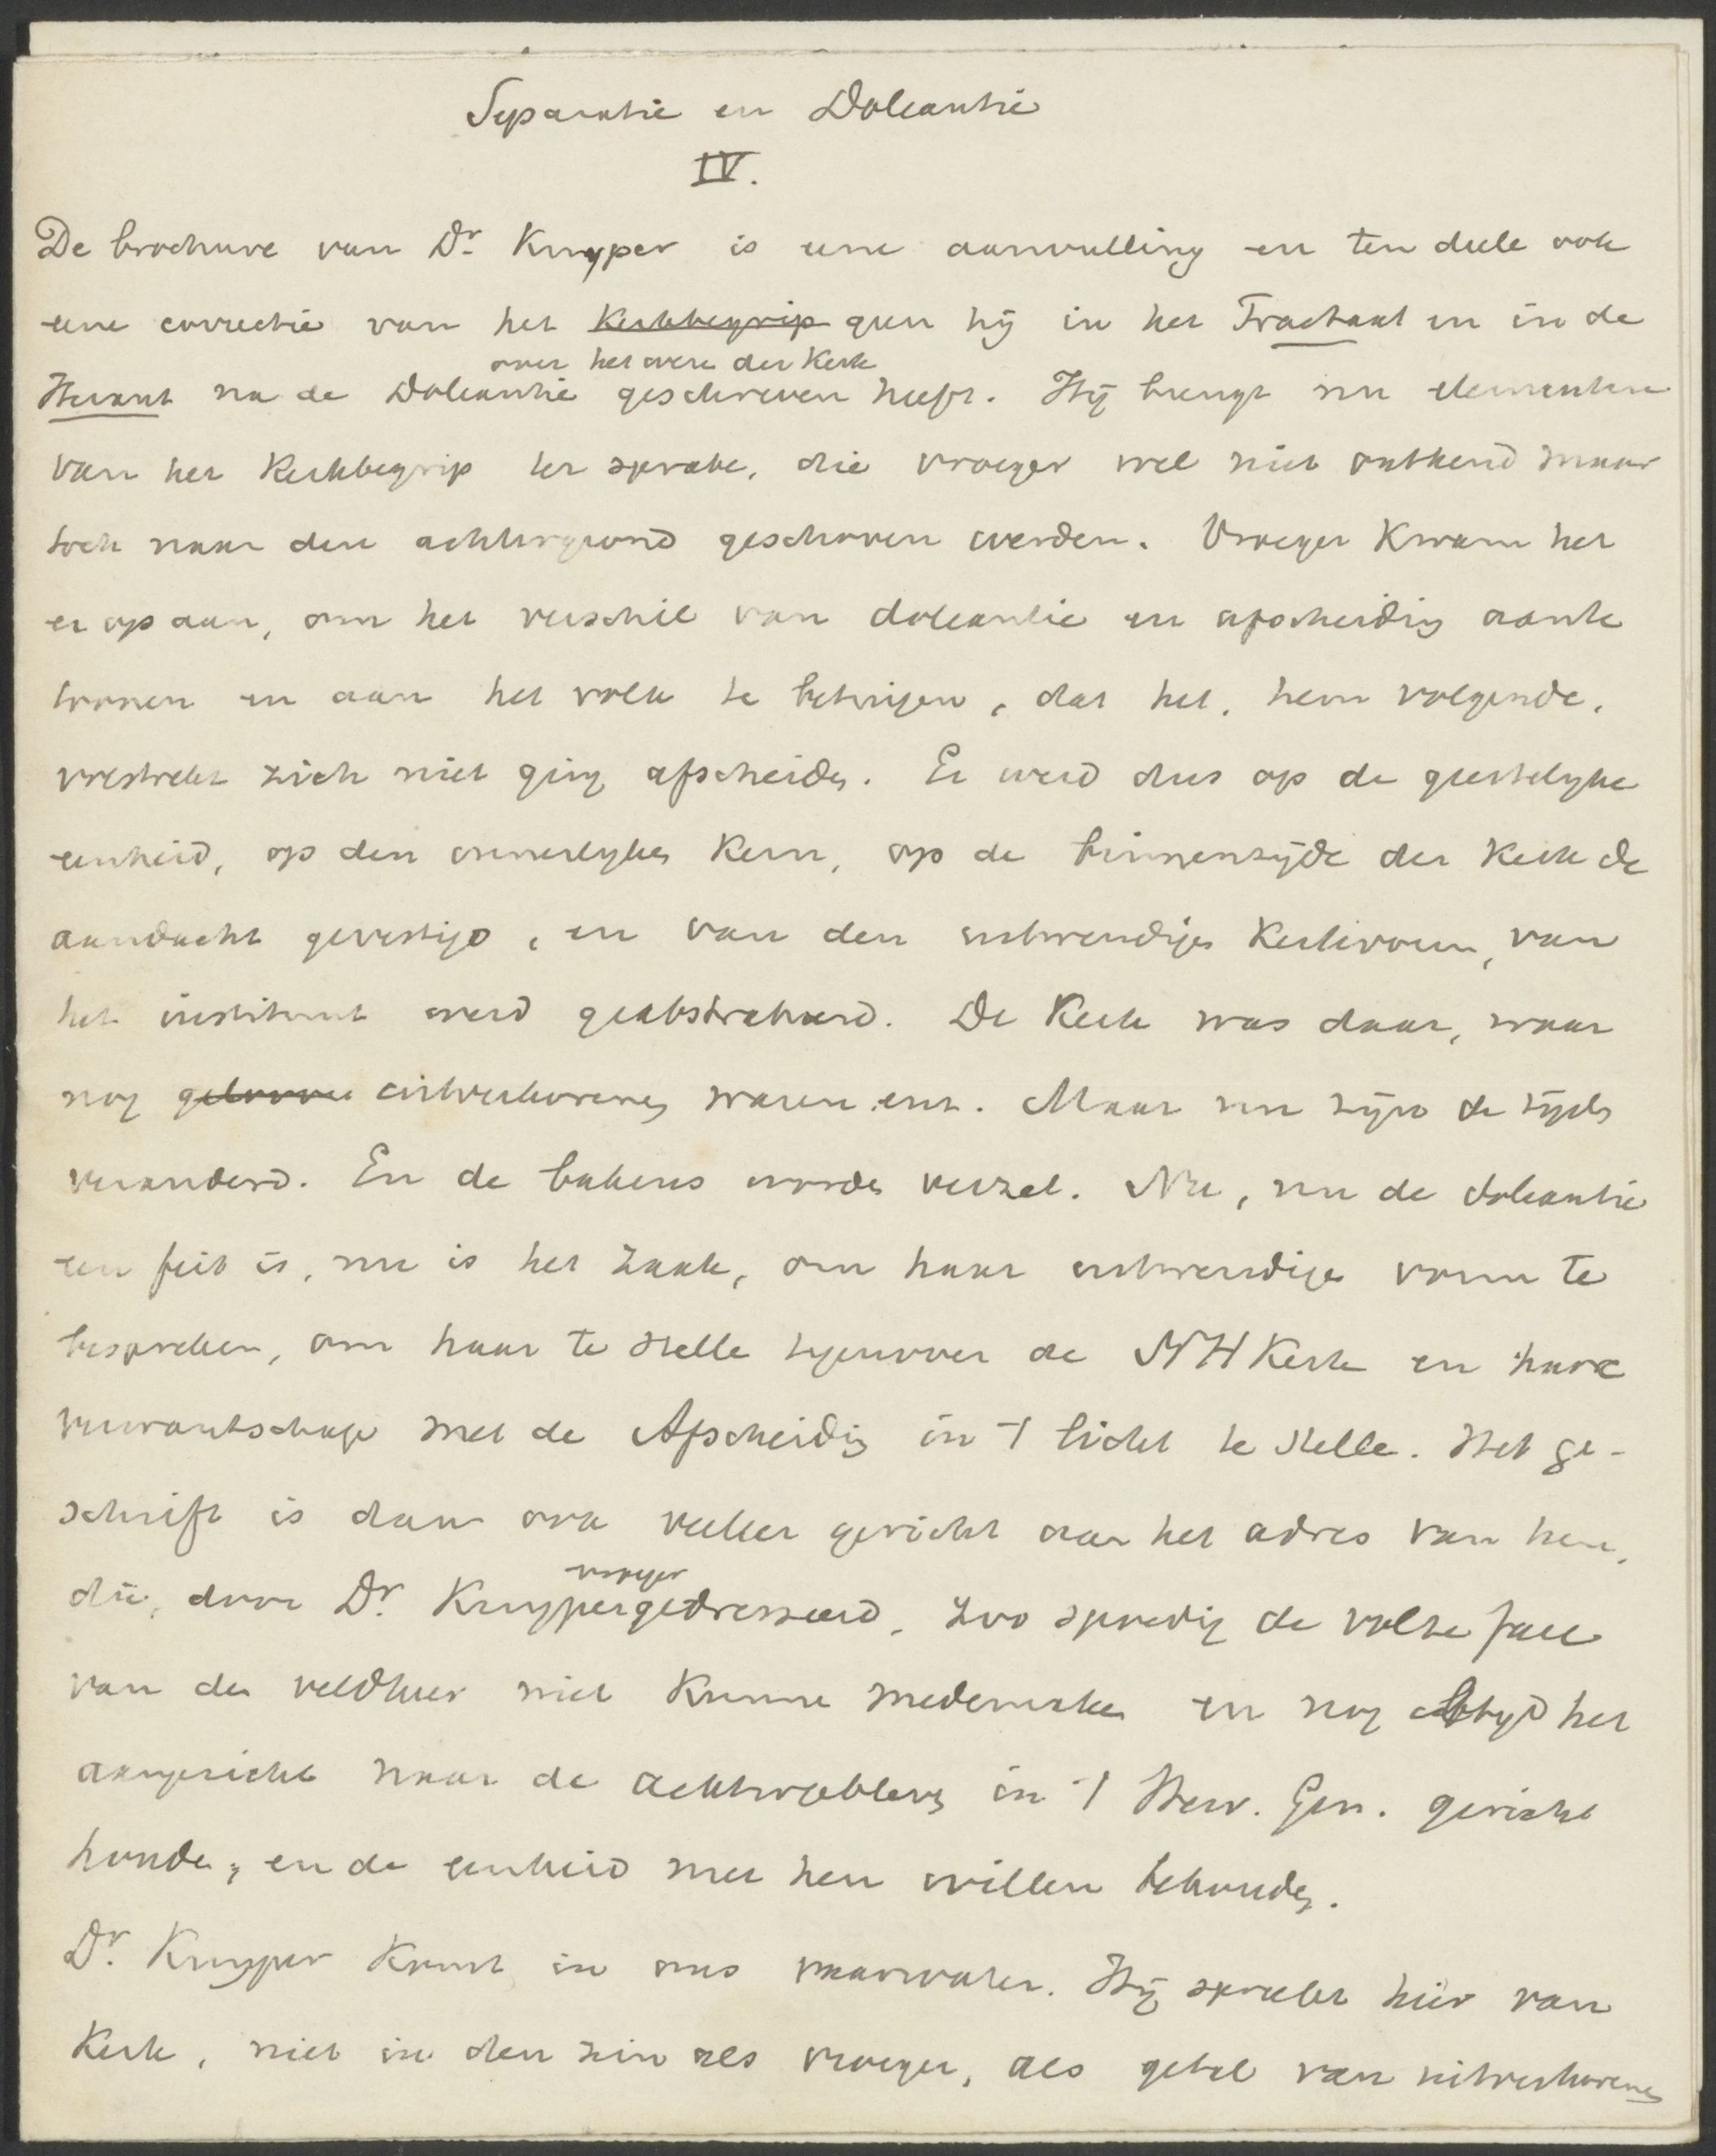 Separatie en Doleantie
IV.
De brochure van Dr. Kuyper is eene aanvulling en ten deele ook
eene correctie van het Kerkbegrip geen hij in het Tractaat en in de
over het wezen der Kerk
Heraut na de Doleantie geschreven heeft. Hij brengt nu elementen
van het Kerkbegrip ter sprake, die vroeger wel niet ontkend maar
toch naar den achtergrond geschoven werden. Vroeger kwam het
er op aan, om het verschil van doleantie en afscheiding aan te
toonen en aan het volk te betuigen, dat het, hem volgende,
volstrekt zich niet ging afscheiden. Er werd dus op de geestelijke
eenheid, op den innerlijken Kern, op de binnenzijde der Kerk de
aandacht gevestigd, en van den uitwendigen Kerkvorm, van
het instituut werd geabstraheerd. De Kerk was daar, waar
nog geloovi uitverkorenen waren enz. Maar nu zijn de tijden
veranderd. En de bakens worden verzet. Nu, nu de doleantie
een feit is, nu is het zaak, om haar uitwendigen vorm te
bespreken, om haar te stellen tegenover de NH Kerk en hare
verwantschap met de Afscheiding in 't licht te stellen. Het ge-
schrift is dan ook veeleer gericht aan het adres van hen,
vroeger
die, door Dr. Kuyper gedresseerd, zoo spoedig de volte face
van den veldheer niet kunnen medemaken en nog altijd het
aangezicht naar de achtergeblevenen in 't Herv. Gen. gericht
houden, en de eenheid met hen willen behouden.
Dr. Kuyper komt in ons vaarwater. Hij spreekt hier van
Kerk, niet in den zin als vroeger, als getal van uitverkorenen